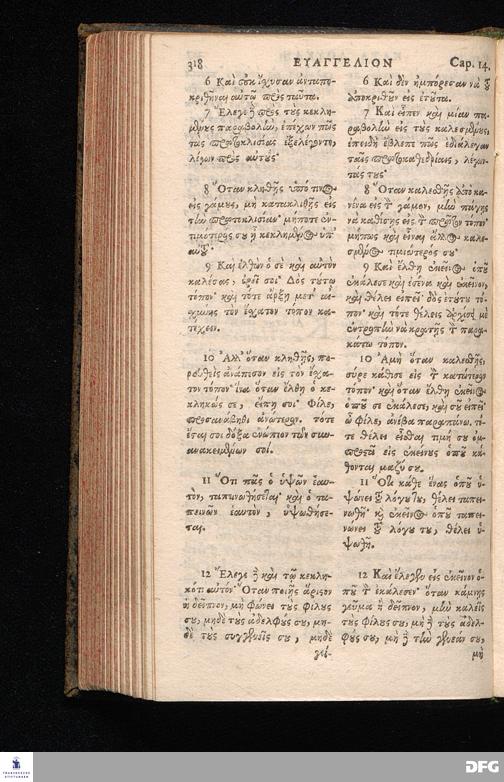 318 ΕΥΑΓΓΕΛΙΟΝ Cap. 14.
6 Καὶ οὐκ ἴσχυσαν ἀνταπο-
κριθῆναι αὐτῷ πρὸς ταῦτα.
7 Ἔλεγε δὲ πρὸς τοὺς κεκλη-
μένους παραβολὴν, ἐπέχων πῶς
τὰς πρωτοκλισίας ἐξελέγοντο,
λέγων πρὸς αὐτούς·
8 Ὅταν κληθῇς ὑπό τινος
εἰς γάμους, μὴ κατακλιθῇς εἰς
τὴν πρωτοκλισίαν· μήποτε ἐν-
τιμότερός σου ᾖ κεκλημένος ὑπ'
αὐτοῦ·
9 Καὶ ἐλθὼν ὁ σὲ καὶ αὐτὸν
καλέσας, ἐρεῖ σοι· Δὸς τούτῳ
τόπον· καὶ τότε ἄρξῃ μετ' αἰ-
σχύνης τὸν ἔσχατον τόπον κα-
τέχειν.
10 Ἀλλ' ὅταν κληθῇς, πο-
ρευθεὶς ἀνάπεσον εἰς τὸν ἔσχα-
τον τόπον· ἵνα ὅταν ἔλθῃ ὁ κε-
κληκώς σε, εἴπῃ σοι· Φίλε,
προσανάβηθι ἀνώτερον. τότε
ἔσται σοι δόξα ἐνώπιον τῶν συν-
ανακειμένων σοί.
11 Ὅτι πᾶς ὁ ὑψῶν ἑαυ-
τὸν, ταπεινωθήσεται· καὶ ὁ τα-
πεινῶν ἑαυτὸν, ὑψωθήσε-
ται.
12 Ἔλεγε δὲ καὶ τῷ κεκλη-
κότι αὐτόν· Ὅταν ποιῇς ἄριστον
ἢ δεῖπνον, μὴ φώνει τοὺς φίλους
σου, μηδὲ τοὺς ἀδελφούς σου, μη-
δὲ τοὺς συγγενεῖς σου, μηδὲ
γεί-
6 Καὶ δὲν ἠμπόρεσαν νὰ τοῦ
ἀποκριθοῦν εἰς ἐτοῦτα.
7 Καὶ εἶπεν καὶ μίαν πα-
ραβολὴν εἰς τοὺς καλεσμένους,
ἐπειδὴ ἔβλεπε πῶς ἐδιάλεγαν
ταῖς πρωτοκαθεδρίαις, λέγων-
τάς τους·
8 Ὅταν καλεσθῇς ἀπὸ κα-
νένα εἰς τὸν γάμον, μὴν πάγῃς
νὰ καθίσῃς εἰς τὸν πρῶτον τόπον·
μήπως καὶ εἶναι ἄλλος καλε-
σμένος τιμιώτερός σου·
9 Καὶ ἔλθῃ ἐκεῖνος ὁποῦ
ἐκάλεσε καὶ ἐσένα καὶ ἐκεῖνον,
καὶ θέλει εἰπεῖ· δὸς ἐτούτου τό-
πον· καὶ τότε θέλεις ἀρχίσῃ μὲ
ἐντροπὴν νὰ κρατῇς τὸν παρα-
κάτω τόπον.
10 Ἀμὴ ὅταν καλεσθῇς,
σύρε κάθισε εἰς τὸν κατώτερον
τόπον· καὶ ὅταν ἔλθῃ ἐκεῖνος
ὁποῦ σε ἐκάλεσε, καὶ σοῦ εἰπεῖ·
ὦ φίλε, ἀνέβα παραπάνω. τό-
τε θέλει εἶσθαι τιμή σου ὀμ-
προστὰ εἰς ἐκείνους ὁποῦ κά-
θονται μαζύ σου.
11 Ὅτι κάθε ἕνας ὁποῦ ὑ-
ψώνει τοῦ λόγου του, θέλει ταπει-
νωθῆ· καὶ ἐκεῖνος ὁποῦ ταπει-
νώνει τοῦ λόγου του, θέλει ὑ-
ψωθῆ.
12 Καὶ ἔλεγεν εἰς ἐκεῖνον ὁ-
ποῦ τὸν ἐκάλεσεν· ὅταν κάμνῃς
γεῦμα ἢ δεῖπνον, μὴν καλεῖς
τοὺς φίλους σου, μὴ δὲ τοὺς ἀδελ-
φούς σου, μὴ δὲ τὴν γενεάν σου,
μὴ
FRANCKESCHE STIFTUNGEN
DFG